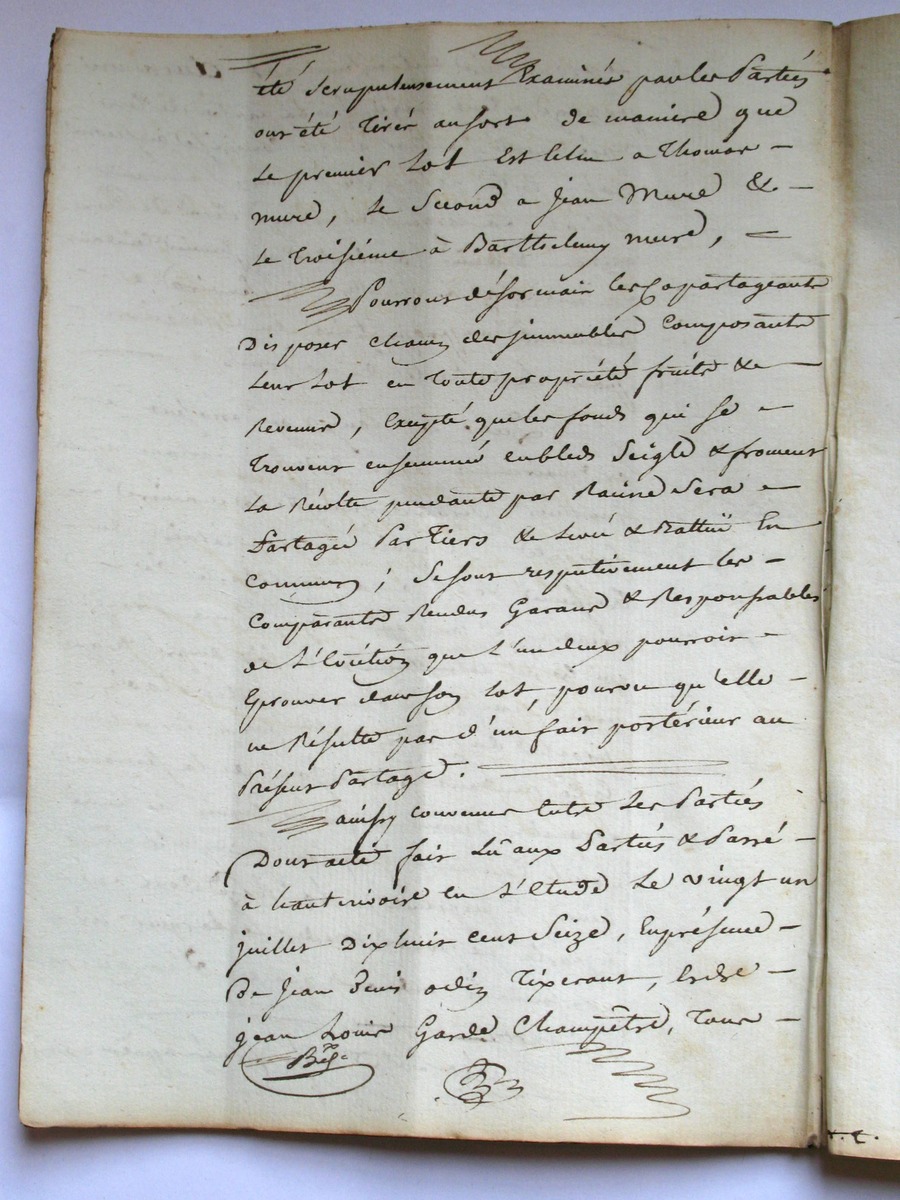 été Scrupuleusement Examinés par les Parties
ont été Tirés au sort de maniere que
Le premier Lot Est échu a Thomas -
mure, Le Second a Jean Mure & -
Le Troisième à Barthelemy mure, -
Pourront désormain les Copartageants
Disposer chacun des immeubles Composants
Leur Lot en Toute propriété fruits &
Revenus, Excepté que les fonds qui se -
Trouvent ensemmés en bleds Seigle & froment
La Récolte pendante par Racine Sera -
Partagée Par Tiers & Levée & Battüe En
Commun ; Se sont respectivement les -
Comparants Rendus Garans & Responsables
de L'Eviction que L'un deux pourroit -
Eprouver dans son Lot, pourvu qu'elle -
ne Résulte pas d'un fait postérieur au
Présent Partage.
ainsy convenus Entre Les Parties
Dont acte fait Lu aux Parties & Passé -
à hauterivoire En L'Etude Le vingt un
juillet Dix huit cent Seize, En présence -
De Jean Denis odin Tixerant, &
jean Louis Garde Champêtre, Tous -